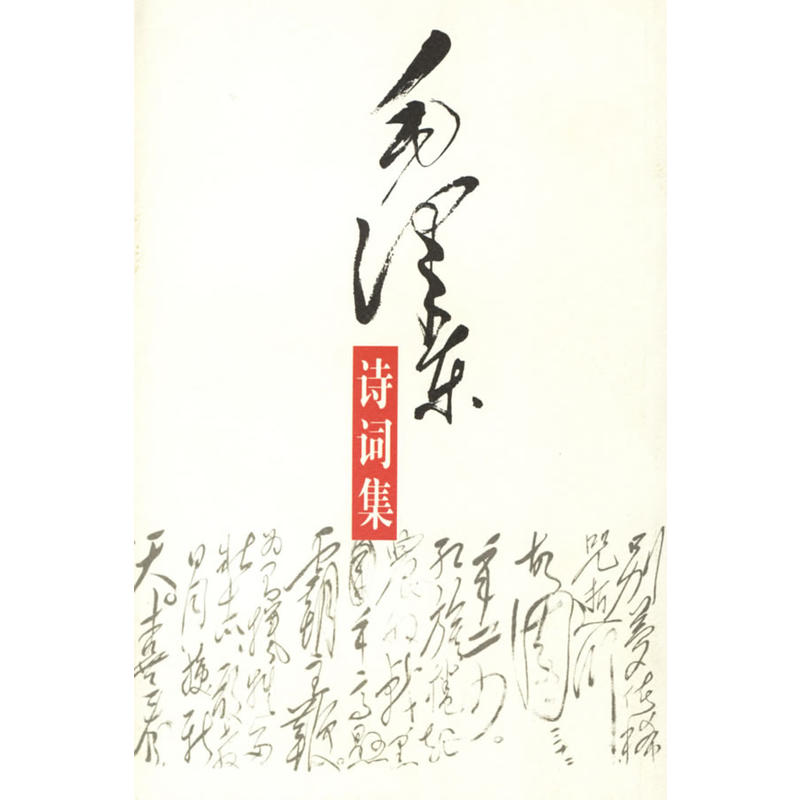 毛泽东
诗词集
别梦依稀
咒逝川
故园三十二
年前。
红旗卷起
农奴戟黑
手高悬
霸主鞭。
为有牺牲多
壮志敢教
日月换新
天。喜看